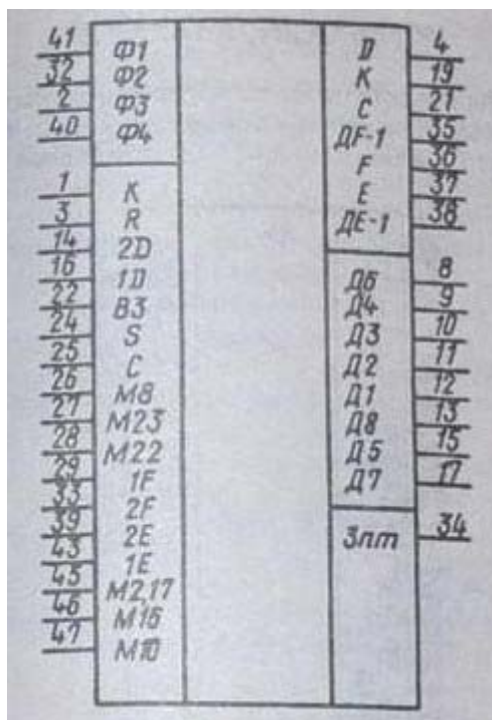 41 Ф1
32 Ф2
2 Ф3
40 Ф4
1 K
3 R
14 2D
16 1D
22 B3
24 S
25 C
26 M8
27 M23
28 M22
29 1F
33 2F
39 2E
43 1E
45 M2,17
46 M16
47 M10
D 4
K 19
C 21
ДF-1 35
F 36
E 37
ДE-1 38
Д6 8
Д4 9
Д3 10
Д2 11
Д1 12
Д8 13
Д5 15
Д7 17
Зпт 34